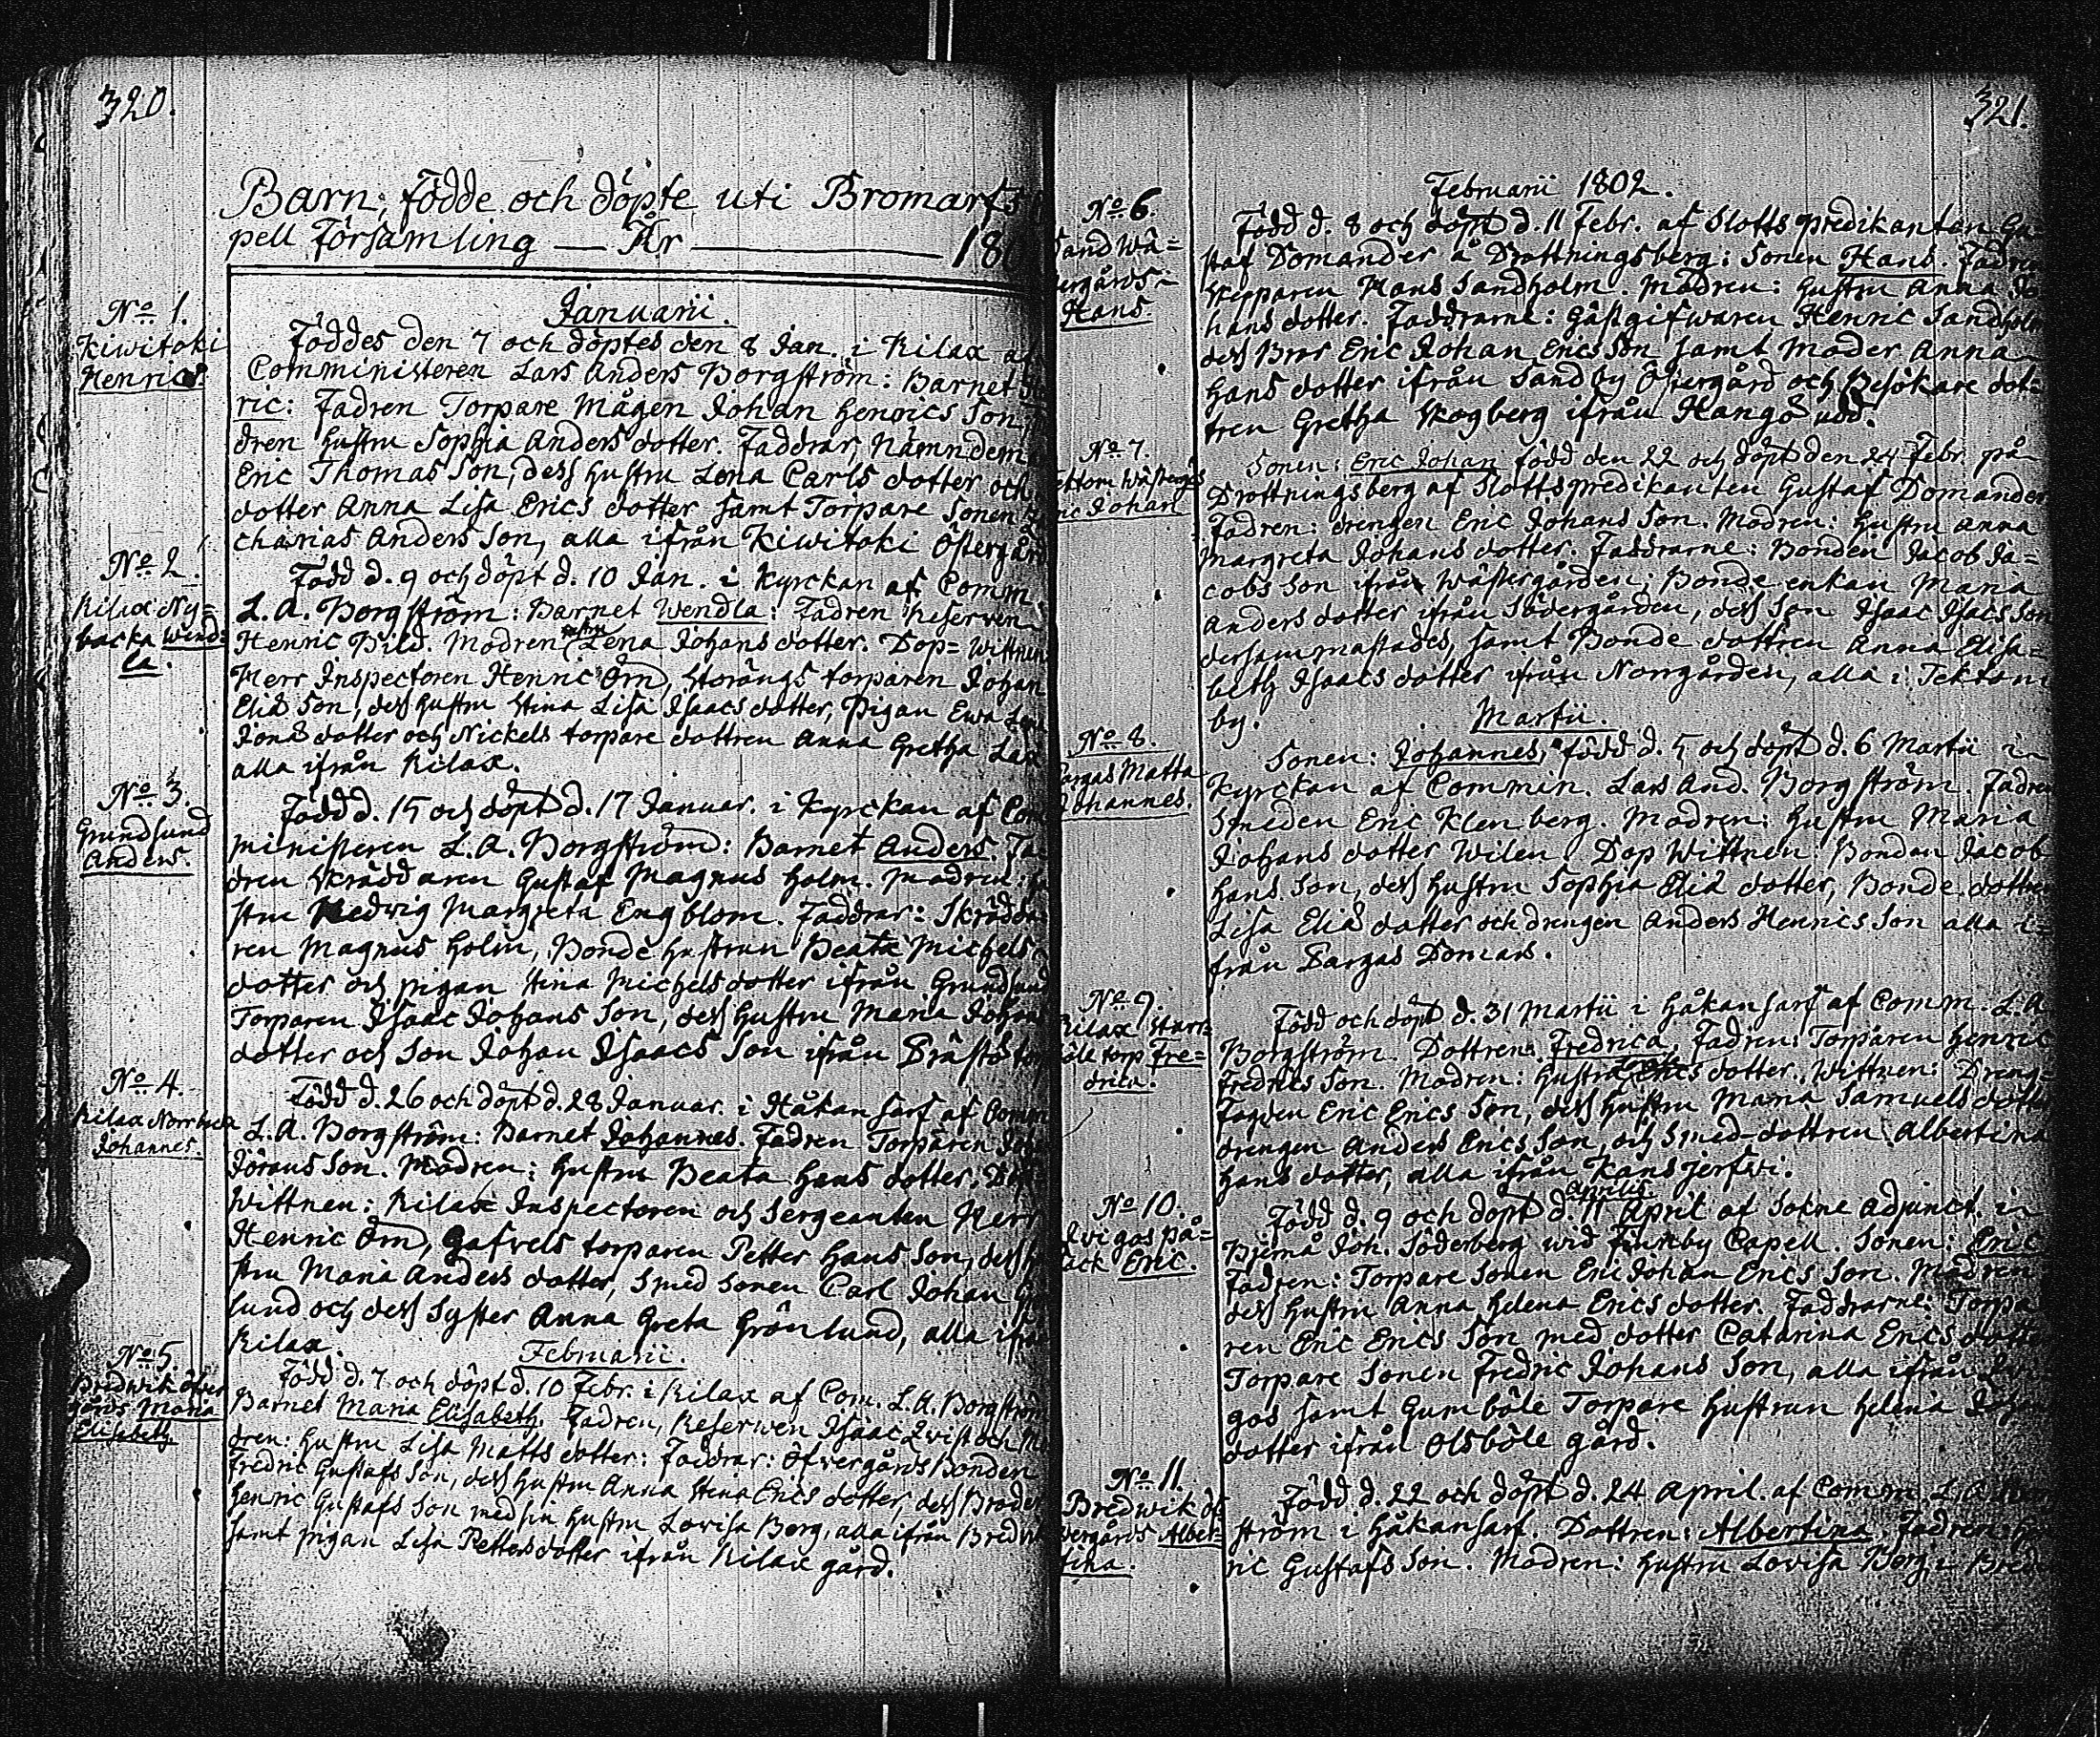 320.
Barn, födde och döpte uti Bromarfs
pell Församling — År — 180
Januarii.
No 1.
Kiwitoki
Henric.
Föddes den 7 och döptes den 8 Jan. i Kilax af
Comministeren Lars Anders Borgström: Barnet
ric: Fadren Torpare Mågen Johan Henrics Son,
dren Hustru Sophia Anders dotter. Faddrar, Nämndem
Eric Thomas Son, dess Hustru Lena Carls dotter och
dotter Anna Lisa Erics dotter samt Torpare Sonen
charias Anders Son, alla ifrån Kiwitoki Östergård
No 2.
Kilax Ny=
backa Wend=
la.
Född d. 9 och döpt d. 10 Jan. i Kyrckan af Comm.
L. A. Borgström: Barnet Wendla: Fadren Reserven
Henric Bild. Modren hustru Lena Johans dotter. Dop= Wittnen
Herr Inspectoren Henric Öm, Storängs torparen Johan
Eliæ Son, dess Hustru Stina Lisa Isaacs dotter, Pigan Ewa
Jonæ dotter och Nickels torpare dottren Anna Gretha
alla ifrån Kilax.
No 3.
Grundsund
Anders.
Född d. 15 och döpt d. 17 Januar. i Kyrckan af Com
ministeren L. A. Borgström: Barnet Anders. Fa
dren Skräddaren Gustaf Magnus Holm. Modren: Hu
stru Hedvig Margreta Engblom. Faddrar: Skrädda
ren Magnus Holm, Bonde hustrun Beata Michels
dotter och pigan Stina Michelsdotter ifrån Grundsund
Torparen Isaac Johans Son, dess Hustru Maria Johans
dotter och Son Johan Isaacs Son ifrån
No 4.
Kilax Norrbacka
Johannes.
Född d. 26 och döpt d. 28 Januar. i Håkansarf af Comm
L. A. Borgström: Barnet Johannes. Fadren Torparen
Jörans Son. Modren: Hustru Beata Hans dotter. Dop
Wittnen: Kilax Inspectoren och Sergeanten Herr
Henric Öm, Gafvels torparen Petter Hans Son, dess
stru Maria Anders dotter, Smed Sonen Carl Johan
lund och dess Syster Anna Greta Grönlund, alla ifrån
Kilax.
Februarii.
No 5.
Bredwik Öfver
gårds Maria
Elisabeth
Född d. 7 och döpt d. 10 Febr. i Kilax af Com. L. A. Borgström
Barnet Maria Elisabeth. Fadren, Reserwen Isaac Qwist och Mo
dren: Hustru Lisa Matts dotter: Faddrar: Öfwergårds Bonden
Fredric Gustafs Son, dess Hustru Anna Stina Erics dotter, dess Broder
Henric Gustafs Son med sin Hustru Lovisa Borg, alla ifrån Bredwik
samt pigan Lisa Petters dotter ifrån Kilax gård.
321.
Februarii 1802.
No 6.
Sand Wä=
tergårds
Hans.
Född d. 8 och döpt d. 11 Febr. af Slotts predikanten Gu
staf Domander å Drottningsberg: Sonen Hans. Fadren
Skepparen Hans Sandholm. Modren: Hustru Anna Jo
hans dotter. Faddrarne: Gästgifwaren Henric Sandholm
dess Bror Eric Johan Erics Son samt Moder Anna
Hans dotter ifrån Sandby Östergård och Besökare dot=
tren Gretha Skogberg ifrån Hangö udd.
No 7.
ektom Wästergå
ric Johan
Sonen: Eric Johan född den 22 och döpt den 24 Febr. på
Drottningsberg af Slottspredikanten Gustaf Domander
Fadren: drengen Eric Johans Son. Modren: Hustru Anna
Margreta Johans dotter. Faddrarne: Bonden Jacob Ja=
cobs Son ifrån Wästergården; Bonde enkan Maria
Anders dotter ifrån Södergården, dess Son Isaac Isacs Son
dersammastades, samt Bonde dottren Anna Elisa=
beth Isaacs dotter ifrån Norrgården, alla i Tektom
by.
Martii.
No 8.
argas Matts
Johannes.
Sonen: Johannes, född d. 5 och döpt d. 6 Martii i
Kyrckan af Commin. Lars And. Borgström. Fadren
Smeden Eric Klenberg. Modren: Hustru Maria
Johans dotter Wilen. Dop Wittnen: Bonden Jacob
Hans Son, dess Hustru Sophia Eliæ dotter, Bonde dottren
Lisa Eliæ dotter och drengen Anders Henrics Son alla i=
från Pargas Domars.
No 9.
Kilax Starr=
böle torp Fre=
drica.
Född och döpt d. 31 Martii i Håkansarf af Comm. L. A
Borgström. Dottren: Fredrica. Fadren: Torparen Henric
Fredrics Son. Modren: Hustru Erics dotter. Wittnen: Dreng=
Fogden Eric Erics Son, dess Hustru Maria Samuels dotter
drengen Anders Erics Son, och Smed-dottren Albertina
Hans dotter, alla ifrån Kansjerfwi.
Aprilis
No 10.
Lwigos På=
back Eric.
Född d. 9 och döpt d. 11 April af Sokne Adjunct. i
Bjernå Joh. Söderberg wid Finnby Capell. Sonen: Eric
Fadren: Torpare Sonen Eric Johan Erics Son. Modren
dess Hustru Anna Helena Erics dotter. Faddrarne: Torpa
ren Eric Erics Son med dotter Catarina Erics dotter
Torpare Sonen Fredric Johans Son, alla ifrån
gos samt Gumböle Torpare Hustrun Helena Johans
dotter ifrån Olsböle gård.
No 11.
Bredwik Öf=
wergårds Alber
tina.
Född d. 22 och döpt d. 24 April. af Comm. L. A. Borg
ström i Håkansarf. Dottren: Albertina. Fadren: Hen
ric Gustafs Son. Modren: Hustru Lovisa Borg, i Bred